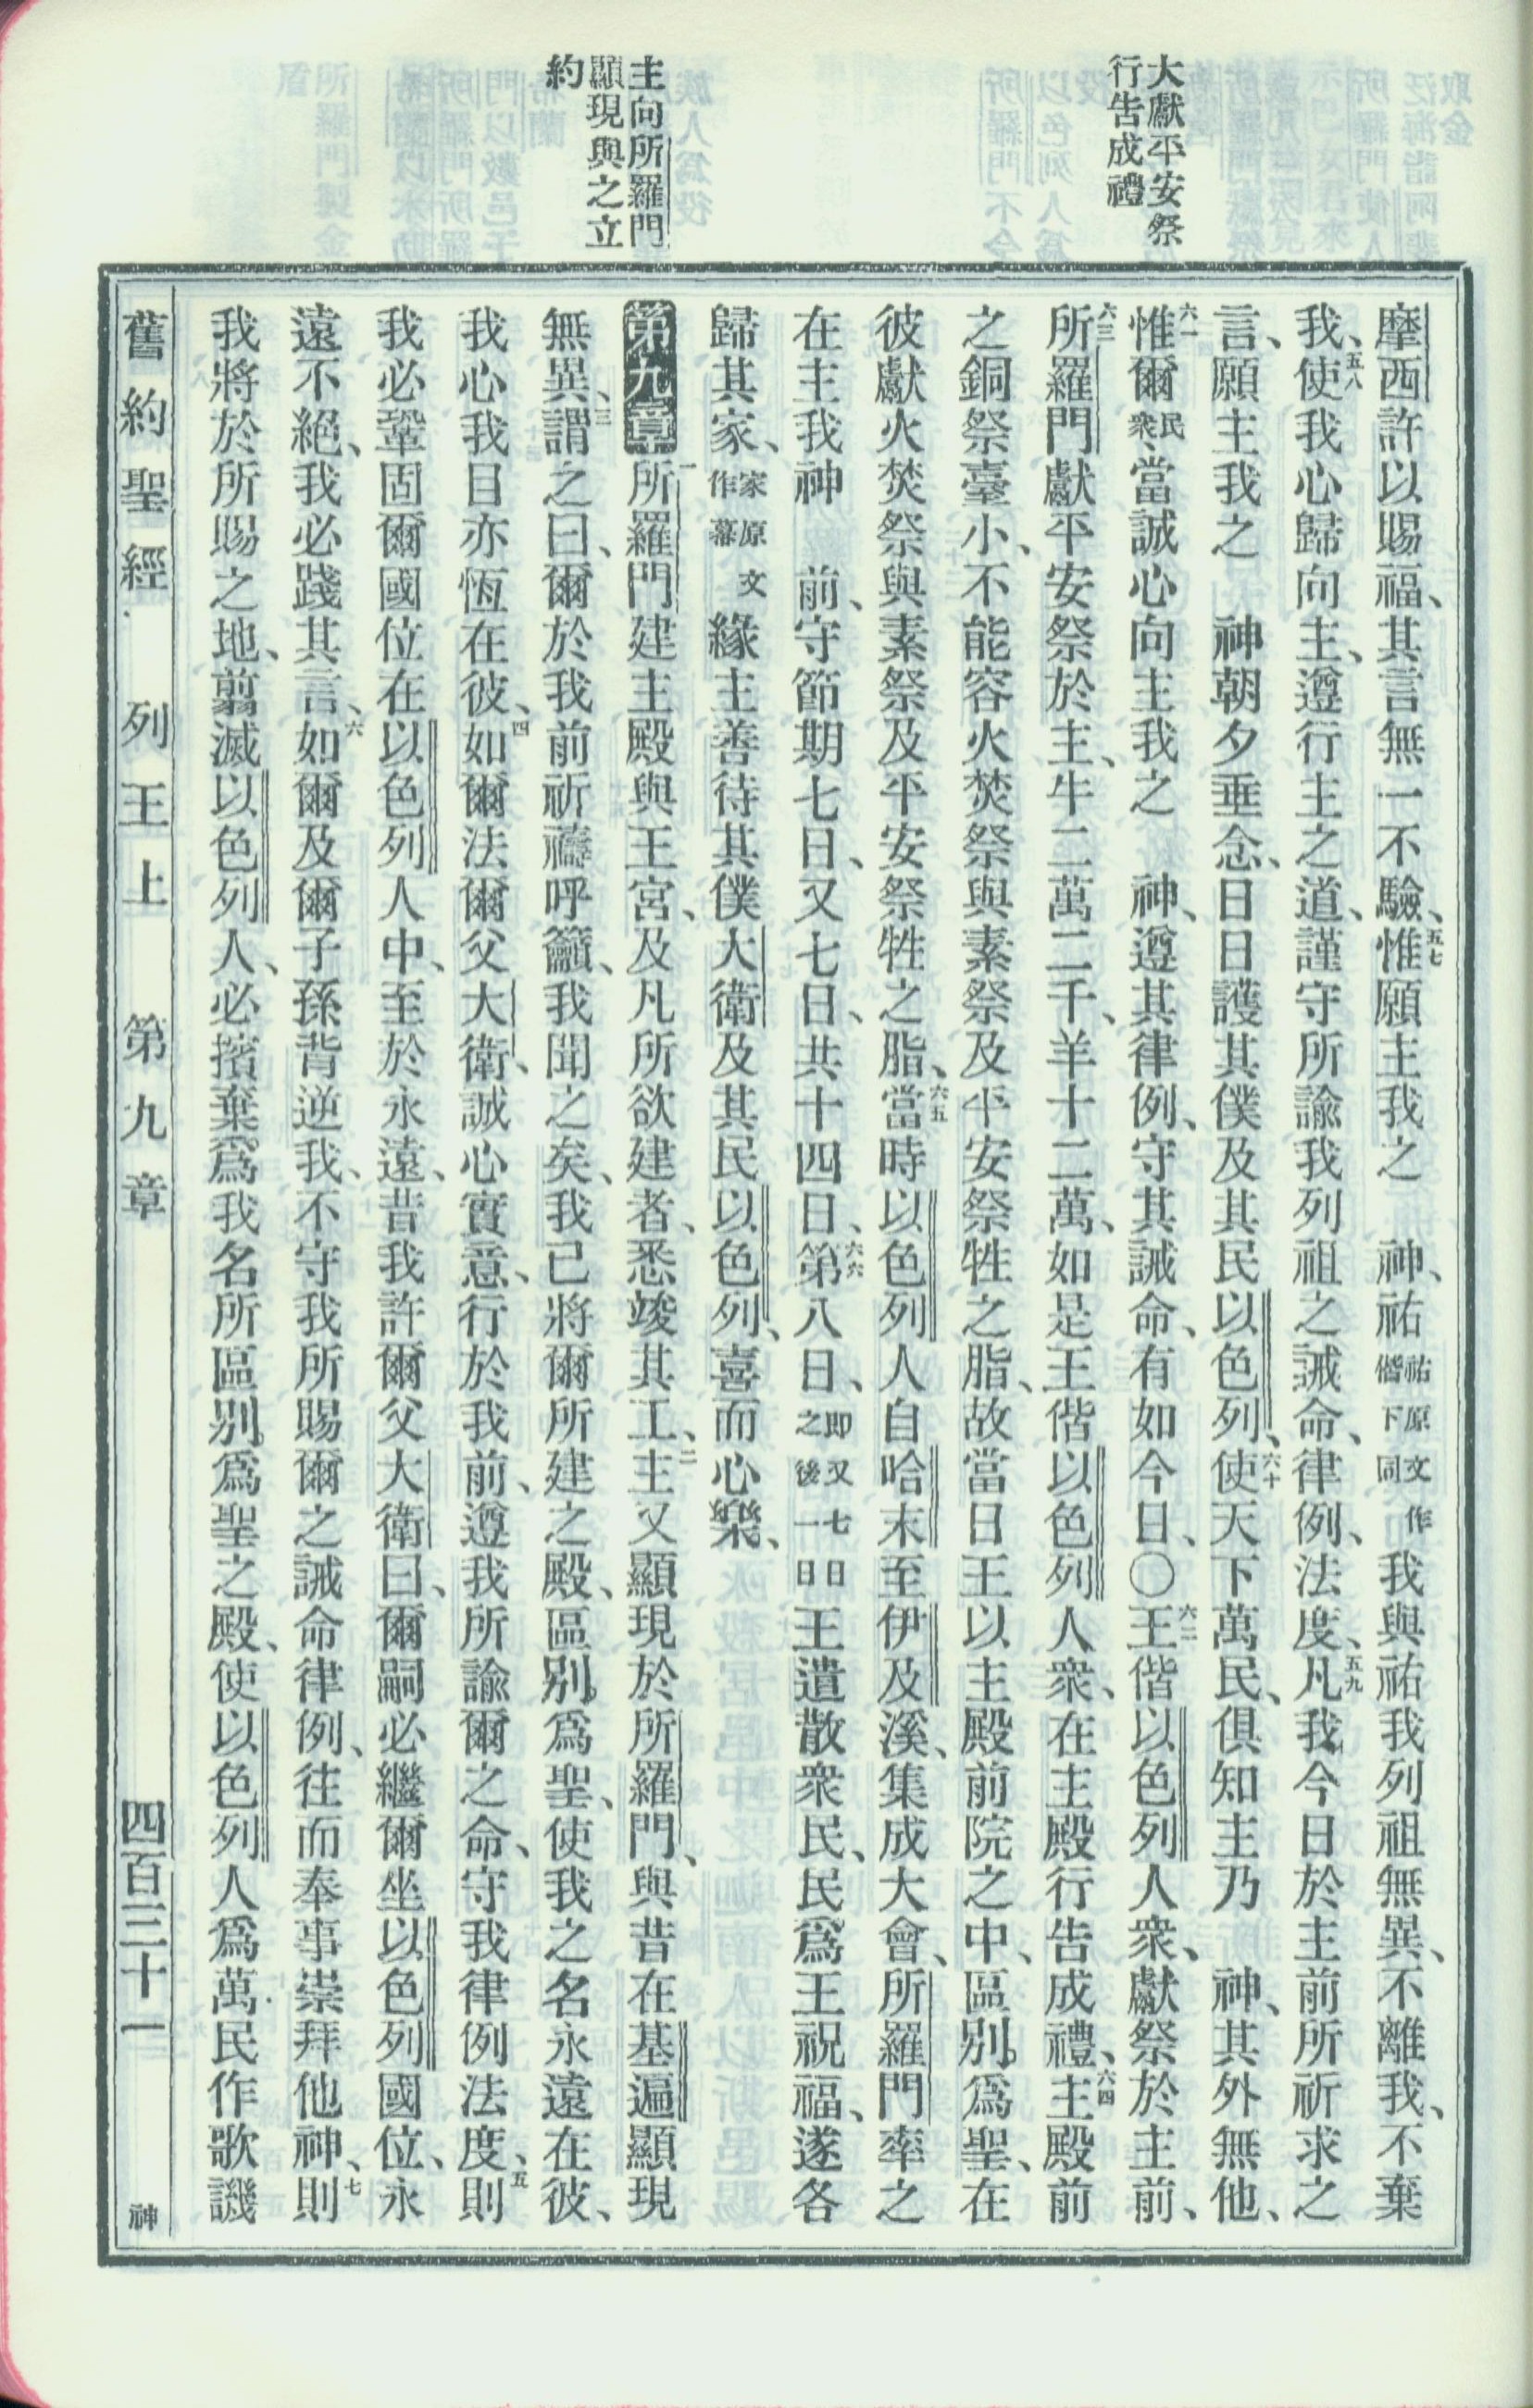 大獻平安祭
行告成禮
主向所羅門
顯現與之立
約
摩西許以賜福、其言無一不驗、五七惟願主我之　神、祐祐原文作偕下同我與祐我列祖無異、不離我、不棄
我、五八使我心歸向主、遵行主之道、謹守所諭我列祖之誡命、律例、法度、五九凡我今日於主前所祈求之
言、願主我之　神朝夕垂念、日日護其僕及其民以色列、六十使天下萬民、俱知主乃　神、其外無他、
六一惟爾民衆、當誠心向主我之　神、遵其律例、守其誡命、有如今日、〇六二王偕以色列人衆、獻祭於主前、
六三所羅門獻平安祭於主、牛二萬二千、羊十二萬、如是王偕以色列人衆、在主殿行告成禮、六四主殿前
之銅祭臺小、不能容火焚祭與素祭及平安祭牲之脂、故當日王以主殿前院之中、區別爲聖、在
彼獻火焚祭與素祭及平安祭牲之脂、六五當時以色列人自哈末至伊及溪、集成大會、所羅門率之
在主我神　前、守節期七日、又七日、共十四日、六六第八日、即又七日之後一日王遣散衆民、民爲王祝福、遂各
歸其家、家原文作幕緣主善待其僕大衛及其民以色列、喜而心樂、
第九章一所羅門建主殿與王宮、及凡所欲建者、悉竣其工、二主又顯現於所羅門、與昔在基遍顯現
無異、三謂之曰、爾於我前祈禱呼籲、我聞之矣、我已將爾所建之殿、區別爲聖、使我之名永遠在彼、
我心我目亦恆在彼、四如爾法爾父大衛、誠心實意、行於我前、遵我所諭爾之命、守我律例法度、五則
我必鞏固爾國位在以色列人中、至於永遠、昔我許爾父大衛曰、爾嗣必繼爾坐以色列國位、永
遠不絕、我必踐其言、六如爾及爾子孫背逆我、不守我所賜爾之誡命律例、往而奉事崇拜他神、七則
我將於所賜之地、翦滅以色列人、必擯棄爲我名所區別爲聖之殿、使以色列人爲萬民作歌譏
舊約聖經　列王上　第九章　四百三十一　神